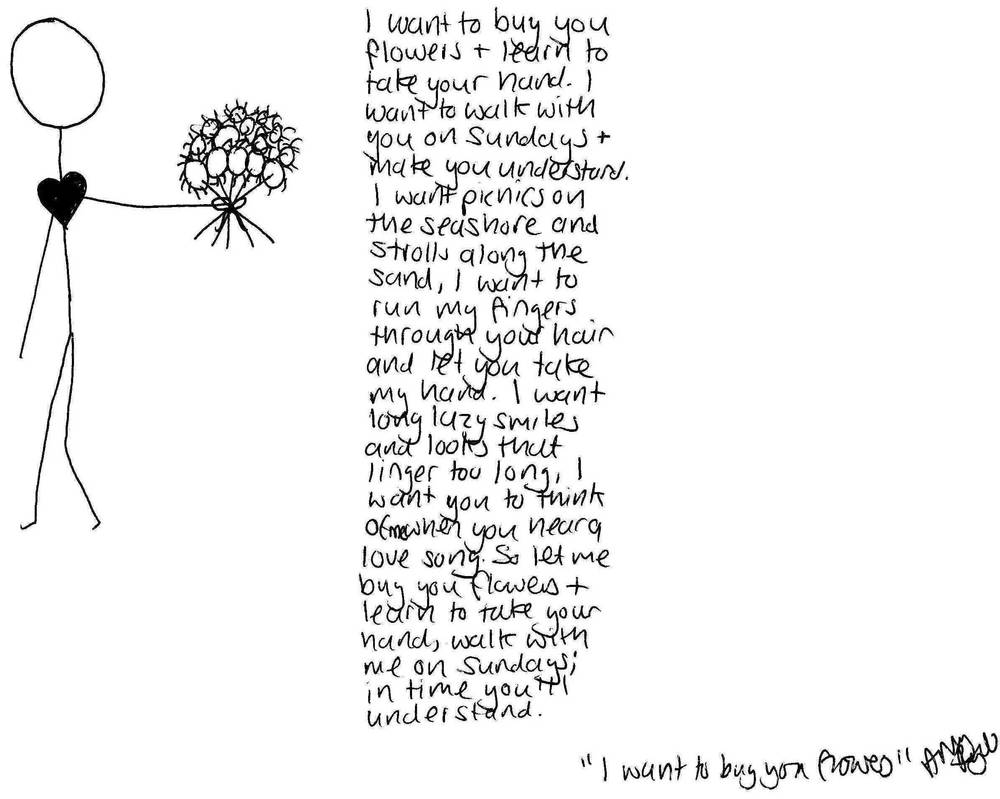 I want to buy you
flowers + learn to
take your hand. I
want to walk with
you on Sundays +
make you understand.
I want picnics on
the seashore and
strolls along the
sand, I want to
run my fingers
through your hair
and let you take
my hand. I want
long lazy smiles
and looks that
linger too long, I
want you to think
of me when you hear a
love song. So let me
buy you flowers +
learn to take your
hand, walk with
me on Sundays;
in time you'll
understand.
"I want to buy you flowers"